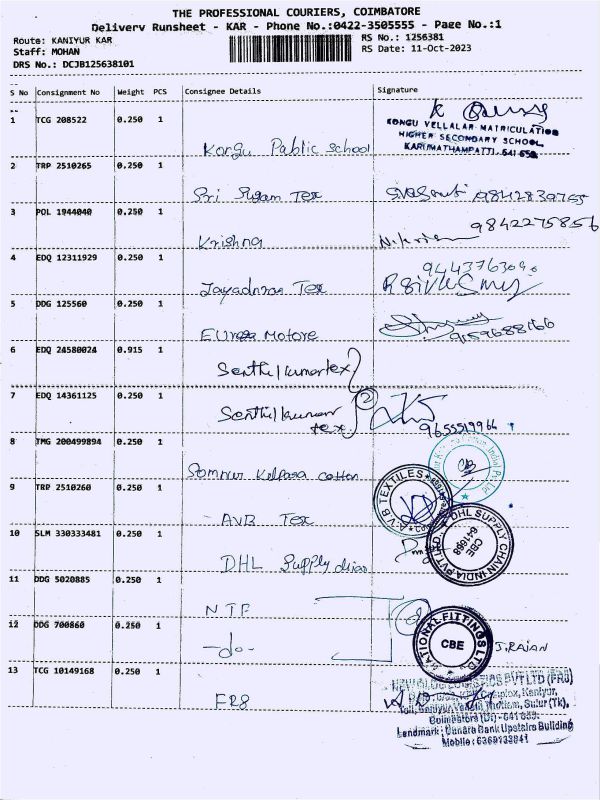 THE PROFESSIONAL COURIERS, COIMBATORE
Delivery Runsheet - KAR - Phone No.:0422-3505555 - Page No.:1
Route: KANIYUR KAR
Staff: MOHAN
DRS No.: DCJB125638101
RS No.: 1256381
RS Date: 11-Oct-2023
S No Consignment No Weight PCS Consignee Details Signature
1 TCG 208522 0.250 1
Kongu Public School
KONGU VELLALAR MATRICULATION
HIGHER SECONDARY SCHOOL,
KARUMATHAMPATTI, 641 659
2 TRP 2510265 0.250 1
Sri Tex
3 POL 1944040 0.250 1
Krishna
9842275856
4 EDQ 12311929 0.250 1
Tex
5 DDG 125560 0.250 1
Motore
9159688166
6 EDQ 24580024 0.915 1
Senthilkumartex
7 EDQ 14361125 0.250 1
Senthilkumar
tex
2
9655519966
8 TMG 200499894 0.250 1
Kalpana cotton
9 TRP 2510260 0.250 1
AVB Tex
A.V.B TEXTILES
10 SLM 330333481 0.250 1
DHL Supply
DHL SUPPLY CHAIN INDIA PVT LTD.
CBE
641668
11 DDG 5020885 0.250 1
NTF
12 DDG 700860 0.250 1
-do-
NATIONAL FITTINGS LTD
CBE
J.RAJAN
13 TCG 10149168 0.250 1
FR8
PVT LTD (FR8)
Complex, Kaniyur,
Sulur (Tk),
Coimbatore (Dt) - 641 659.
Landmark : Canara Bank Upstairs Building
Mobile : 6369133941